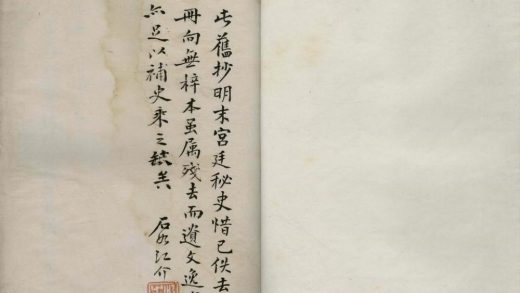 此舊抄明末宮廷秘史惜已佚去
冊向無梓本虽属殘去而遺文逸
亦足以補史乘之缺矣
石如江介